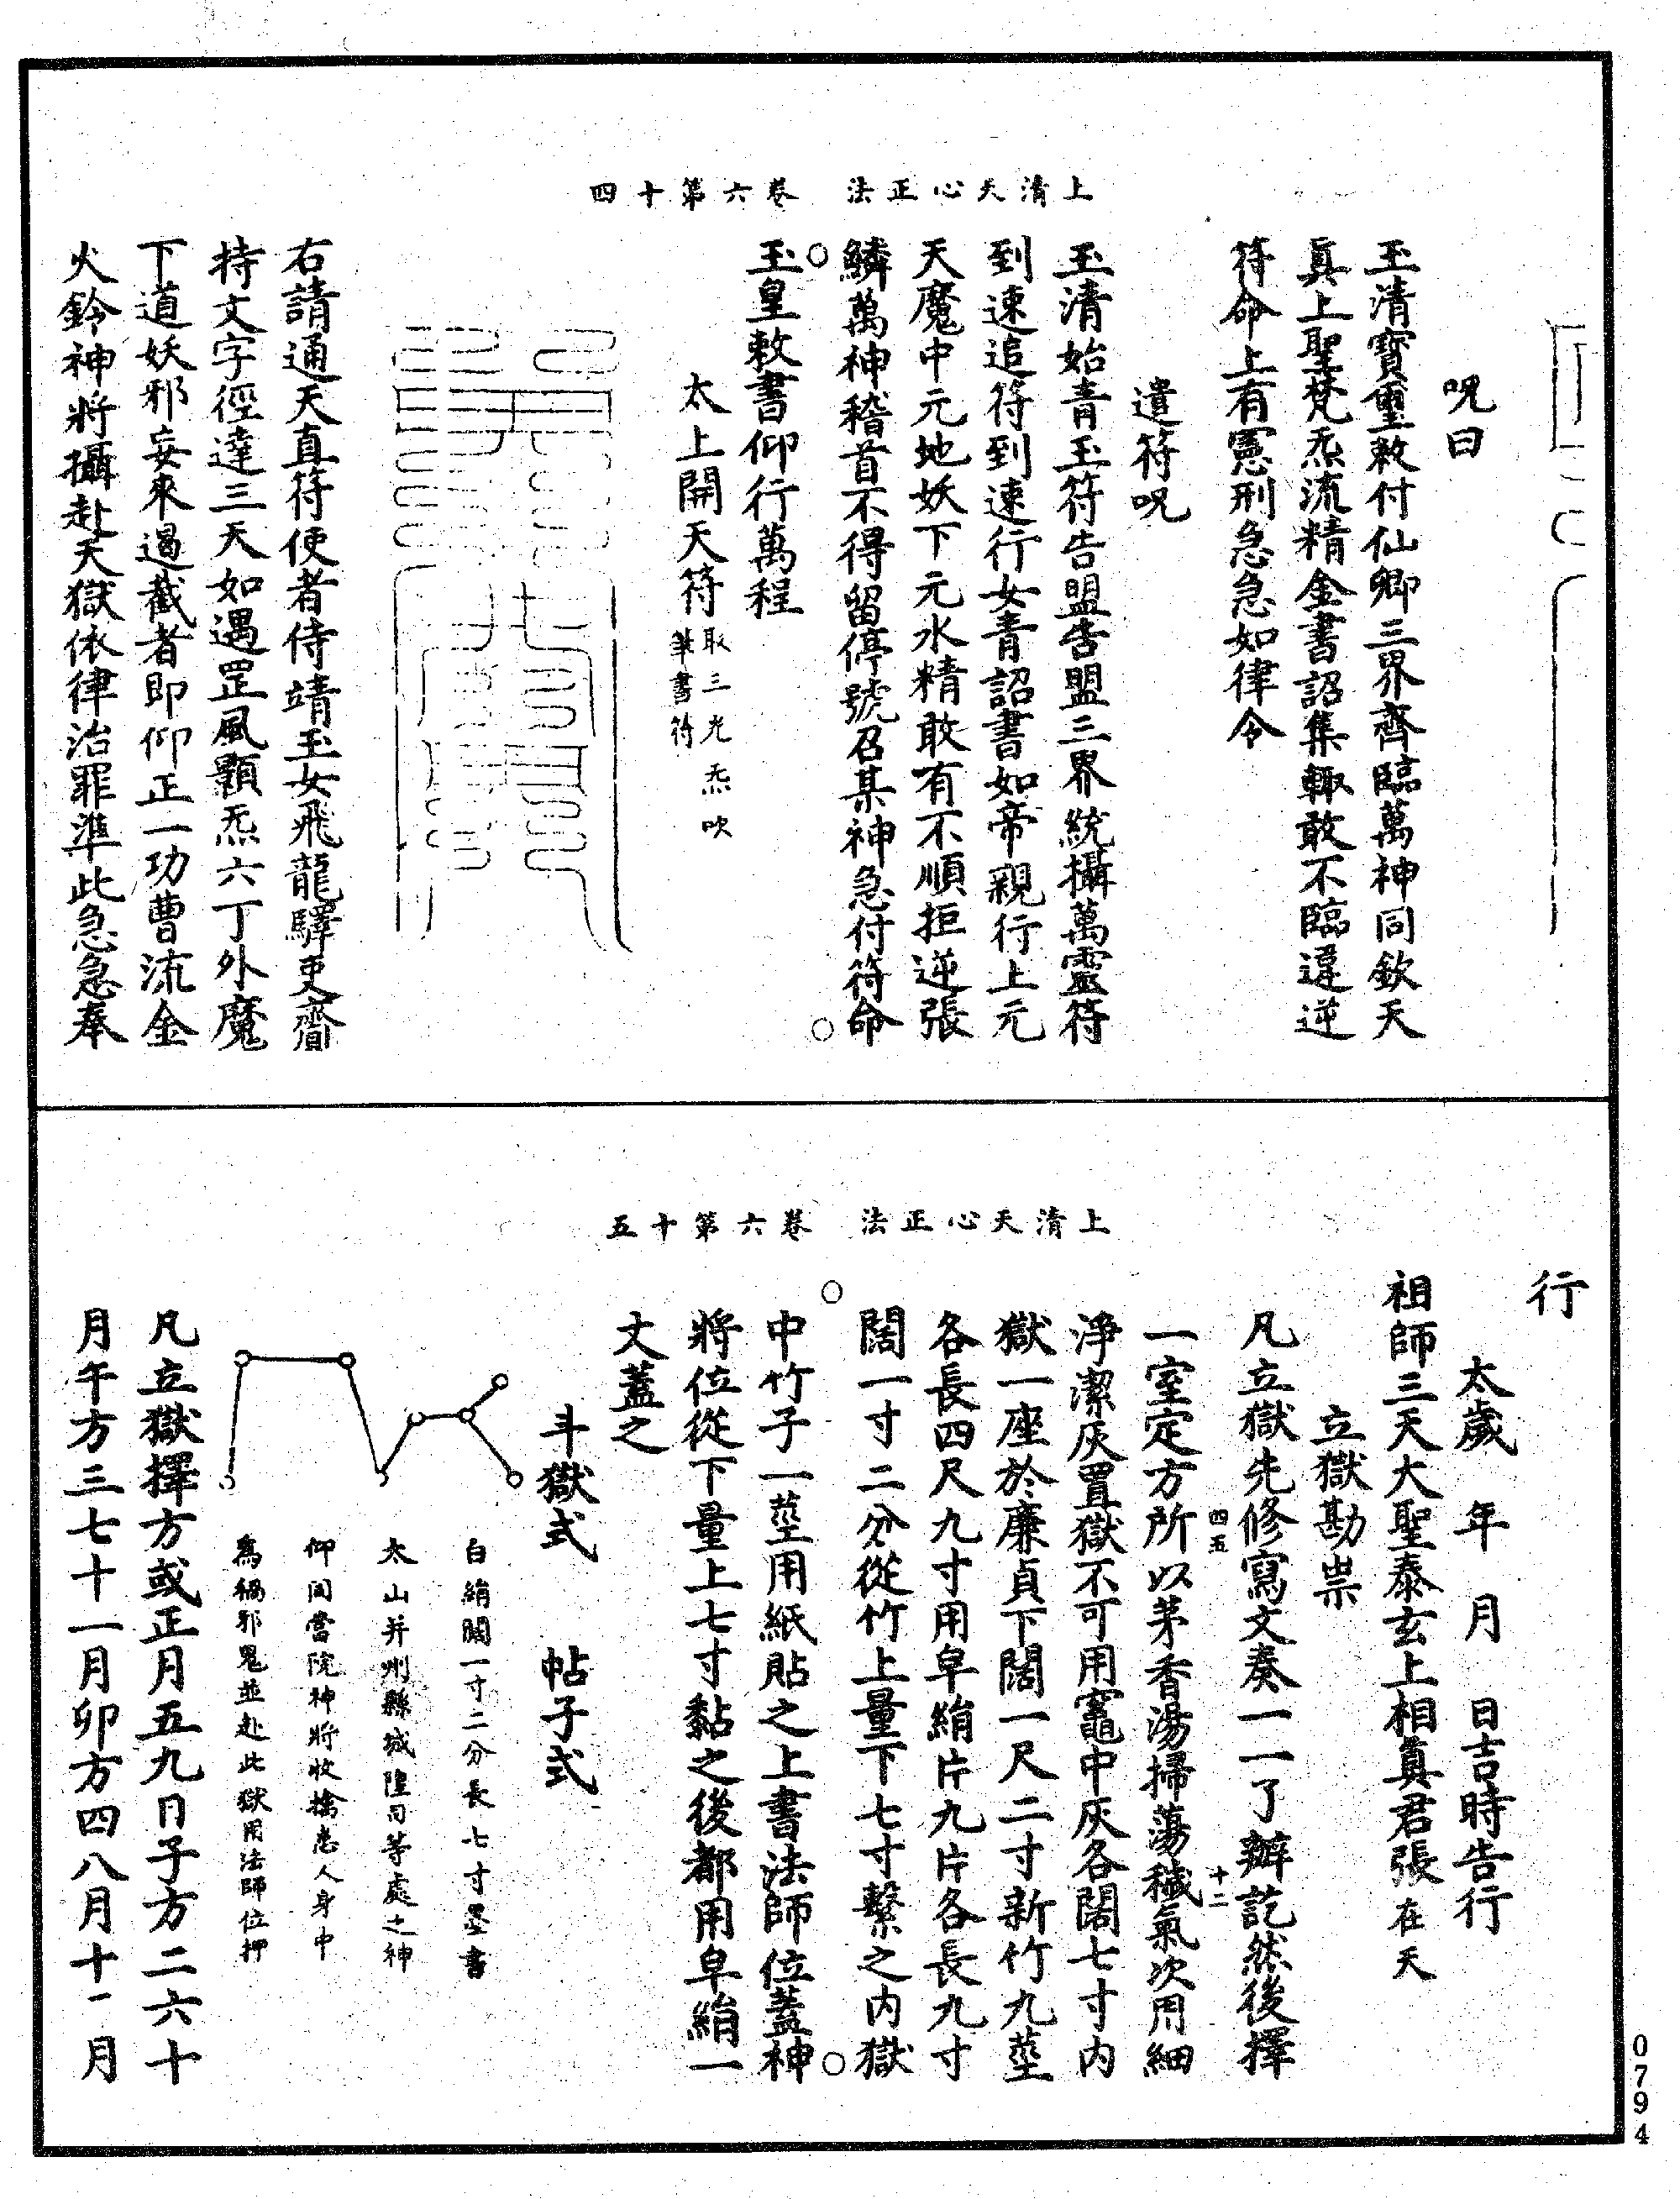 上清天心正法　卷六第十四
呪曰
玉清寶璽敕付仙卿三界齊臨萬神同欽天
真上聖梵炁流精金書詔集輙敢不臨違逆
符命上有憲刑急急如律令
遣符呪
玉清始青玉符告盟告盟三界統攝萬靈符
到速追符到速行女青詔書如帝親行上元
天魔中元地妖下元水精敢有不順拒逆張
鱗萬神稽首不得留停號召某神急付符命
玉皇敕書仰行萬程
太上開天符取三光炁吹
筆書符
右請通天直符使者侍靖玉女飛龍驛吏齎
持文字徑達三天如遇罡風顥炁六丁外魔
下道妖邪妄來遏截者即仰正一功曹流金
火鈴神將攝赴天獄依律治罪準此急急奉
上清天心正法　卷六第十五
行
太歲　年　月　日吉時告行
祖師三天大聖泰玄上相真君張在天
立獄勘祟
凡立獄先修寫文奏一一了辦訖然後擇
四五
十二
一室定方所以茅香湯掃蕩穢氣次用細
淨潔灰置獄不可用竈中灰各闊七寸內
獄一座於廉貞下闊一尺二寸新竹九莖
各長四尺九寸用皁絹片九片各長九寸
闊一寸二分從竹上量下七寸繫之內獄
中竹子一莖用紙貼之上書法師位蓋神
將位從下量上七寸黏之後都用皁絹一
丈蓋之
斗獄式　帖子式
白絹闊一寸二分長七寸墨書
太山并州縣城隍司等處之神
仰同當院神將收擒患人身中
為禍邪鬼並赴此獄用法師位押
凡立獄擇方或正月五九日子方二六十
月午方三七十一月卯方四八月十一月
0794